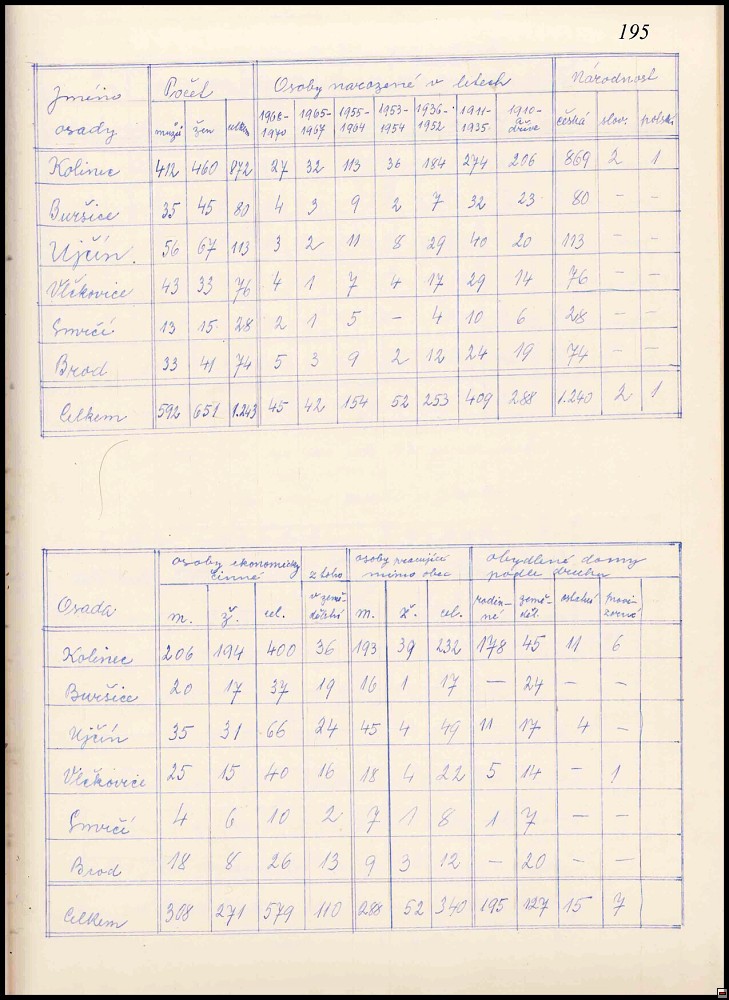 195
Jméno osady | Počet | Osoby narozené v letech | Národnost
mužů | žen | celkem | 1968-1970 | 1965-1967 | 1955-1964 | 1953-1954 | 1936-1952 | 1911-1935 | 1910-a dříve | česká | slov. | polská
Kolinec | 412 | 460 | 872 | 27 | 32 | 113 | 36 | 184 | 274 | 206 | 869 | 2 | 1
Buršice | 35 | 45 | 80 | 4 | 3 | 9 | 2 | 7 | 32 | 23 | 80 | – | –
Ujčín. | 56 | 67 | 113 | 3 | 2 | 11 | 8 | 29 | 40 | 20 | 113 | – | –
Vlčkovice | 43 | 33 | 76 | 4 | 1 | 7 | 4 | 17 | 29 | 14 | 76 | – | –
Smrčí | 13 | 15 | 28 | 2 | 1 | 5 | – | 4 | 10 | 6 | 28 | – | –
Brod | 33 | 41 | 74 | 5 | 3 | 9 | 2 | 12 | 24 | 19 | 74 | – | –
Celkem | 592 | 651 | 1.243 | 45 | 42 | 154 | 52 | 253 | 409 | 288 | 1.240 | 2 | 1
Osada | osoby ekonomicky činné | z toho v země-dělství | osoby pracující mimo obec | obydlené domy podle druhu
m. | ž. | cel. | m. | ž. | cel. | rodin-né | země-děl. | ostatní | provi-zorní
Kolinec | 206 | 194 | 400 | 36 | 193 | 39 | 232 | 178 | 45 | 11 | 6
Buršice | 20 | 17 | 37 | 19 | 16 | 1 | 17 | – | 24 | – | –
Ujčín | 35 | 31 | 66 | 24 | 45 | 4 | 49 | 11 | 17 | 4 | –
Vlčkovice | 25 | 15 | 40 | 16 | 18 | 4 | 22 | 5 | 14 | – | 1
Smrčí | 4 | 6 | 10 | 2 | 7 | 1 | 8 | 1 | 7 | – | –
Brod | 18 | 8 | 26 | 13 | 9 | 3 | 12 | – | 20 | – | –
Celkem | 308 | 271 | 579 | 110 | 288 | 52 | 340 | 195 | 127 | 15 | 7